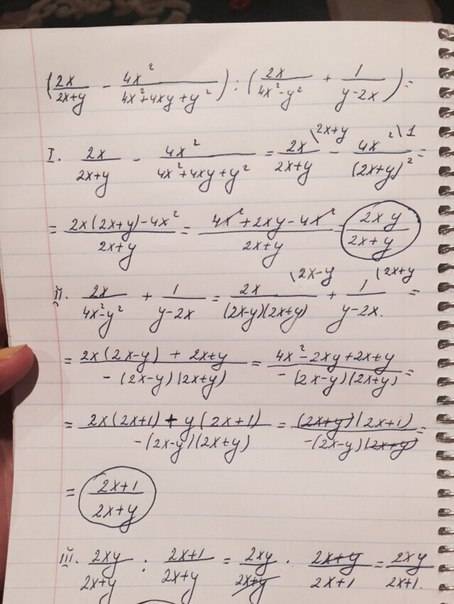 (2x/(2x+y) - 4x²/(4x²+4xy+y²)) : (2x/(4x²-y²) + 1/(y-2x)) =
I. 2x/(2x+y) - 4x²/(4x²+4xy+y²) = 2x\2x+y/(2x+y) - 4x²\1/(2x+y)² =
= (2x(2x+y)-4x²)/(2x+y) = (4x²+2xy-4x²)/(2x+y) = 2xy/(2x+y)
II. 2x/(4x²-y²) + 1/(y-2x) = 2x\2x-y/((2x-y)(2x+y)) + 1\2x+y/(y-2x). =
= (2x(2x-y) + 2x+y)/(-(2x-y)(2x+y)) = (4x²-2xy+2x+y)/(-(2x-y)(2x+y)) =
= (2x(2x+1) + y(2x+1))/(-(2x-y)(2x+y)) = ((2x+y)(2x+1))/(-(2x-y)(2x+y)) =
= (2x+1)/(2x+y)
III. 2xy/(2x+y) : (2x+1)/(2x+y) = 2xy/(2x+y) · (2x+y)/(2x+1) = 2xy/(2x+1.)